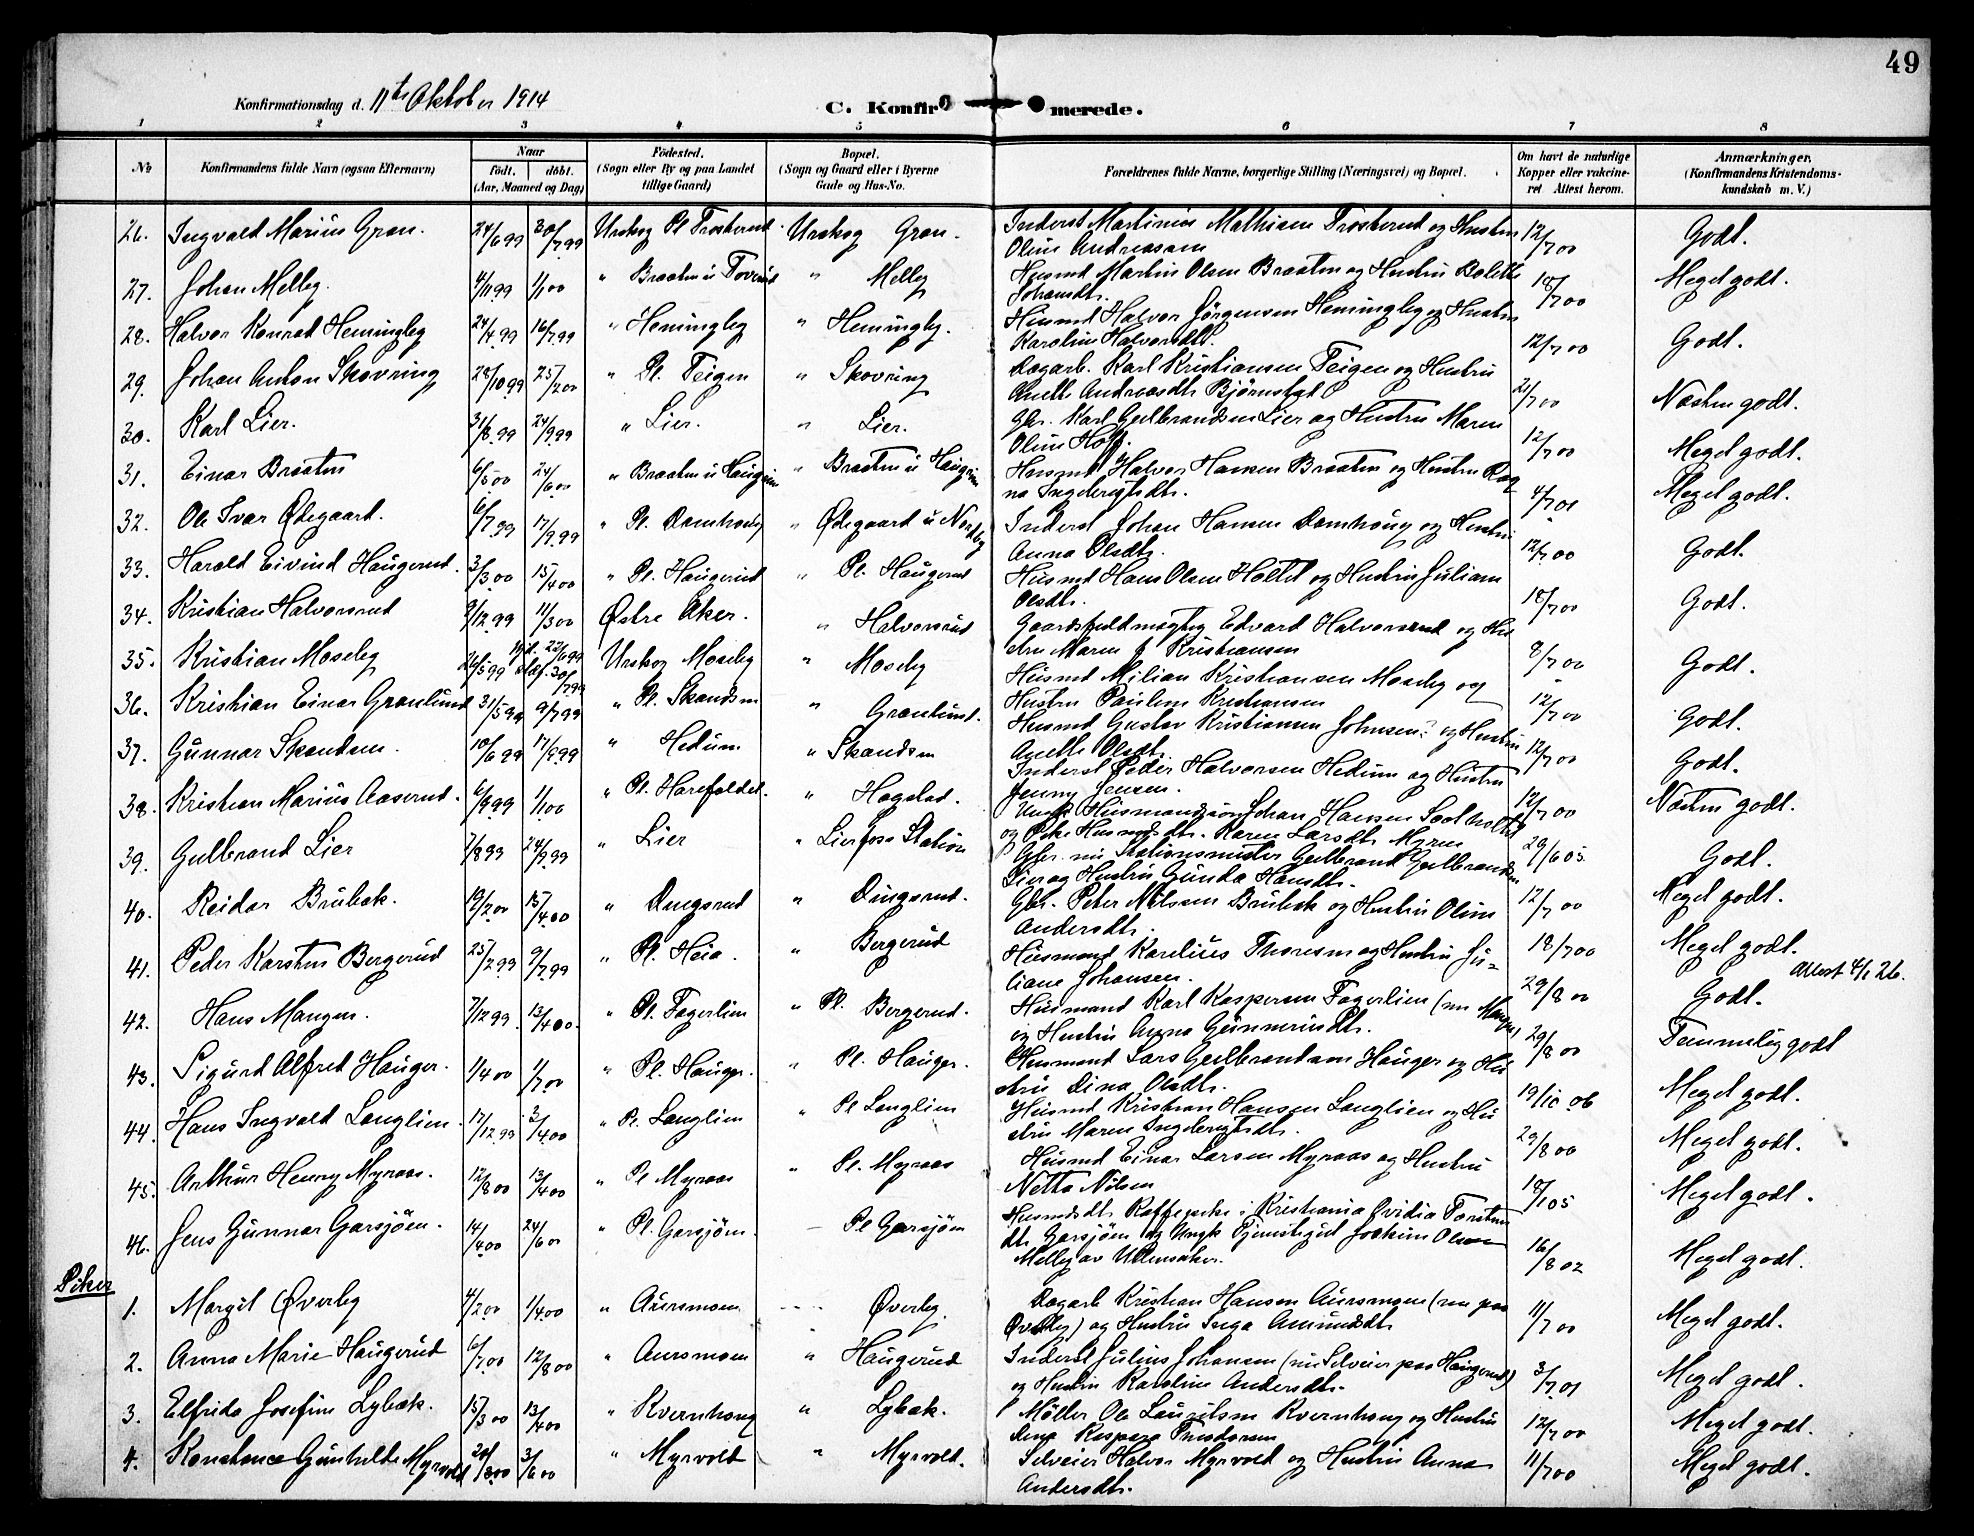 49
Konfirmationsdag d. 11te Oktober 1914
C. Konfirmerede.
1 2 3 4 5 6 7 8
No Konfirmandens fulde Navn (ogsaa Efternavn) Naar født. døbt. (Aar, Maaned og Dag) Fødested. (Sogn eller By og paa Landet tillige Gaard) Bopæl. (Sogn og Gaard eller i Byerne Gade og Hus-No. Forældrenes fulde Navne, borgerlige Stilling (Næringsvei) og Bopæl. Om havt de naturlige Kopper eller vakcineret Attest herom. Anmærkninger, (Konfirmandens Kristendomskundskab m. V.)
26. Ingvald Marius Gran. 24/6 99 30/7 99 Urskog Pl Trosterud Urskog Gran. Inderst Martinius Mathisen Trosterud og Hustru 12/7 00 Godt.
Oline Andreassen
27. Johan Melby. 4/11 99 1/1 00 " Braaten u Toverud " Melby Husmd Martin Olsen Braaten og Hustru Bolette 18/7 00 Meget godt.
Johansdt.
28. Halvor Konrad Hemingby 24/4 99 16/7 99 " Hemingby " Hemingby. Husmd Halvor Jørgensen Hemingby og Hustru 12/7 00 Godt.
Karoline Halvorsdt.
29. Johan Anton Skovring 28/10 99 25/2 00 " Pl. Teigen " Skovring Dagarb. Karl Kristiansen Teigen og Hustru 21/7 00 Næsten godt.
Anette Andreasdt Bjørnstad
30. Karl Lier. 31/8 99 24/9 99 " Lier. " Lier. Gbr. Karl Gulbrandsen Lier og Hustru Maren 12/7 00 Meget godt.
Oline Hoff.
31. Einar Braaten 6/5 00 24/6 00 " Braaten u Haugrim " Braaten u Haugrim Husmd Halvor Hansen Braaten og Hustru Rag 4/7 01 Meget godt.
na Ingebrigtsdt.
32. Ole Ivar Ødegaard. 6/7 99 17/9 99 " Pl. Damhaug " Ødegaard u Nordby Inderst Johan Hansen Damhaug og Hustru 12/7 00 Godt.
Anna Olsdt.
33. Harald Eivind Haugerud. 3/3 00 15/4 00 " Pl. Haugerud " Pl. Haugerud Husmd Hans Olsen Holtet og Hustru Juliane 18/7 00 Godt.
Olsdt.
34. Kristian Halvorsrud 9/12 99 11/3 00 Østre Aker. " Halvorsrud Gaardsfuldmægtig Edvard Halvorsrud og Hu 8/7 00 Godt.
stru Maren J Kristiansen
35. Kristian Moseby 26/5 99 hjd. 22/6 99 stadf. 30/7 99 Urskog Moseby " Moseby Husmd Milian Kristiansen Moseby og 12/7 00 Godt.
Hustru Pauline Kristiansen
36. Kristian Einar Granlund 31/5 99 9/7 99 " Pl. Skandsen " Granlund. Husmd Gustav Kristiansen Johnsen? og Hustru 12/7 00 Godt.
Anette Olsdt.
37. Gunnar Skandsen. 10/6 99 17/9 99 " Hedum " Skandsen Inderst Peder Halvorsen Hedum og Hustru 12/7 00 Næsten godt.
Jenny Jensen.
38. Kristian Marius Aaserud. 6/9 99 1/1 00 " Pl. Harefaldet. " Hogstad. Ungk Husmandssøn Johan Hansen
og Pike Husmdsdt. Karen Larsdt. Myren 29/6 05
39. Gulbrand Lier 7/8 99 24/9 99 " Lier " Lierfoss Station Gbr. nu Stationsmester Gulbrand Gulbrandsen Godt.
Lier og Hustru Gunda Hansdt.
40. Reidar Brubak. 19/2 00 15/4 00 " Dingsrud " Dingsrud. Gbr. Peter Nilssen Brubak og Hustru Oline 12/7 00 Meget godt.
Andersdt.
41. Peder Karsten Bergerud 25/2 99 9/7 99 " Pl. Heia. " Bergerud Husmand Karelius Thoresen og Hustru Ju- 18/7 00 Meget godt.
liane Johansen. Attest 4/1 26.
42. Hans Mangen. 7/12 99 13/4 00 " Pl. Fagerlien " Pl. Bergerud. Husmand Karl Kaspersen Fagerlien (nu Mangen) 29/8 00 Godt.
og Hustru Anna Gunnerusdt.
43. Sigurd Alfred Hauger. 1/4 00 1/7 00 " Pl. Hauger. " Pl. Hauger. Husmand Lars Gulbrandsen Hauger og Hu 29/8 00 Temmelig godt
stru Dina Olsdt.
44. Hans Ingvald Langlien. 17/12 99 3/4 00 " Pl. Langlien " Pl Langlien Husmd Kristian Hansen Langlien og Hu 19/10 06 Meget godt.
stru Maren Ingebrigtsdt.
45. Arthur Henry Myraas. 12/8 00 13/4 00 " Pl Myraas " Pl. Myraas Husmd Einar Larsen Myraas og Hustru 29/8 00 Meget godt.
Netta Nilsen
46. Jens Gunnar Garsjøen. 14/4 00 24/6 00 " Pl. Garsjøen. — Pl Garsjøen Husmdsdt. Kaffepike i Kristiania Ovidia Torsten Meget godt.
dt. Garsjøen og Ungk Tjenestegut Joakim Olsen
Melby av Ullensaker. 16/8 02 Meget godt.
Piker
1. Margit Øverby 4/2 00 1/4 00 " Aursmoen - - - Øverby. Dagarb Kristian Hansen Aursmoen (nu paa 11/7 00 Meget godt.
Øverby) og Hustru Inga Amundsdt.
2. Anna Marie Haugerud 6/7 00 12/8 00 " Aursmoen " Haugerud Inderst Julius Johansen (nu Selveier paa Haugerud) 3/7 01 Meget godt.
og Hustru Karoline Andersdt.
3. Elfrida Josefine Lybæk. 15/3 00 13/4 00 " Kvernhaug " Lybæk. Møller Ole Lauritsen Kvernhaug og Hustru 12/7 00 Meget godt.
4. Konstance Gunhilde Myrvold 24/1 00 3/6 00 " Myrvold " Myrvold. Selveier Halvor Myrvold og Hustru Anna 11/7 00 Meget godt.
Andersdt.